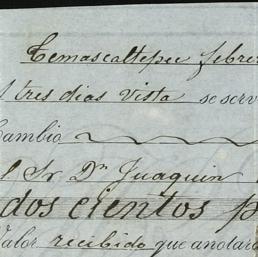 Temascaltepec febre
tres dias vista se serv
Cambio
Sr. Dn. Juaquin
dos cientos p
Valor recibido que anotará